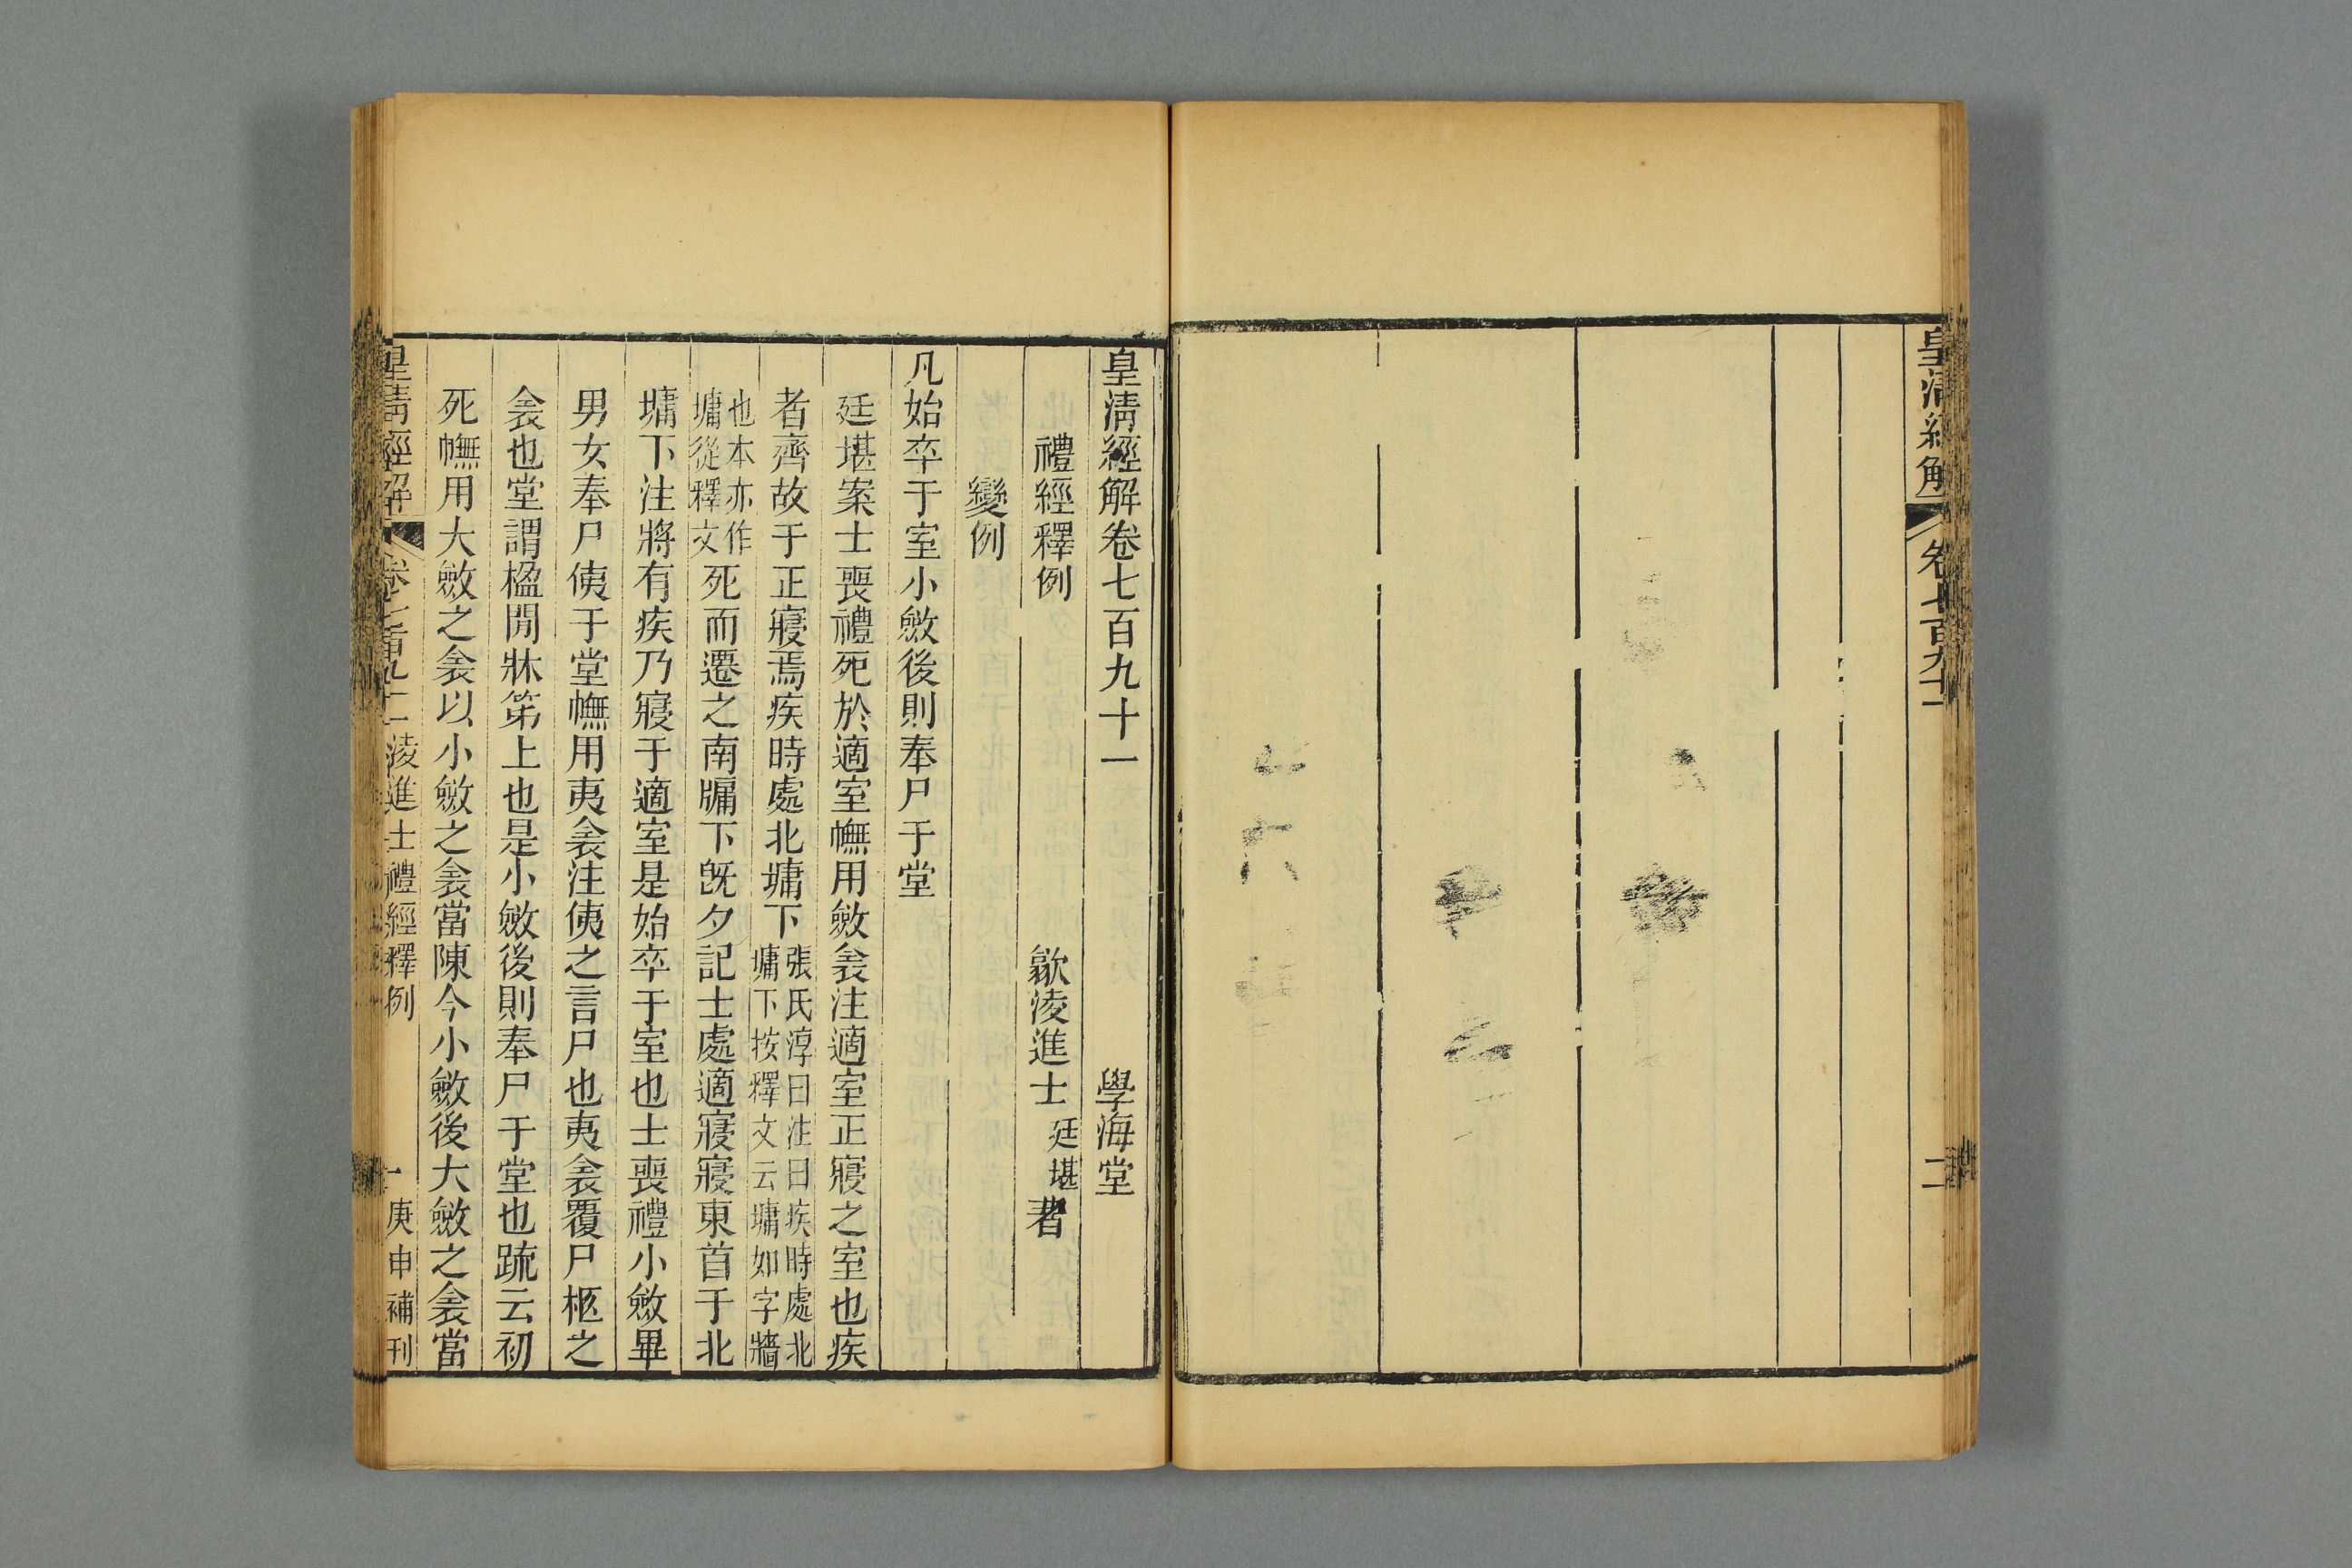 皇清經解 卷七百九十一 二
皇清經解卷七百九十一 學海堂
禮經釋例 歙淩進士廷堪著
變例
凡始卒于室小斂後則奉尸于堂
廷堪案士喪禮死於適室幠用斂衾注適室正寢之室也疾
者齊故于正寢焉疾時處北墉下張氏淳曰注曰疾時處北
墉下按釋文云墉如字牆
也本亦作
墉從釋文死而遷之南牖下旣夕記士處適寢寢東首于北
墉下注將有疾乃寢于適室是始卒于室也士喪禮小斂畢
男女奉尸侇于堂幠用夷衾注侇之言尸也夷衾覆尸柩之
衾也堂謂楹閒牀笫上也是小斂後則奉尸于堂也疏云初
死幠用大斂之衾以小斂之衾當陳今小斂後大斂之衾當
皇清經解 卷七百九十一 淩進士禮經釋例 一 庚申補刊